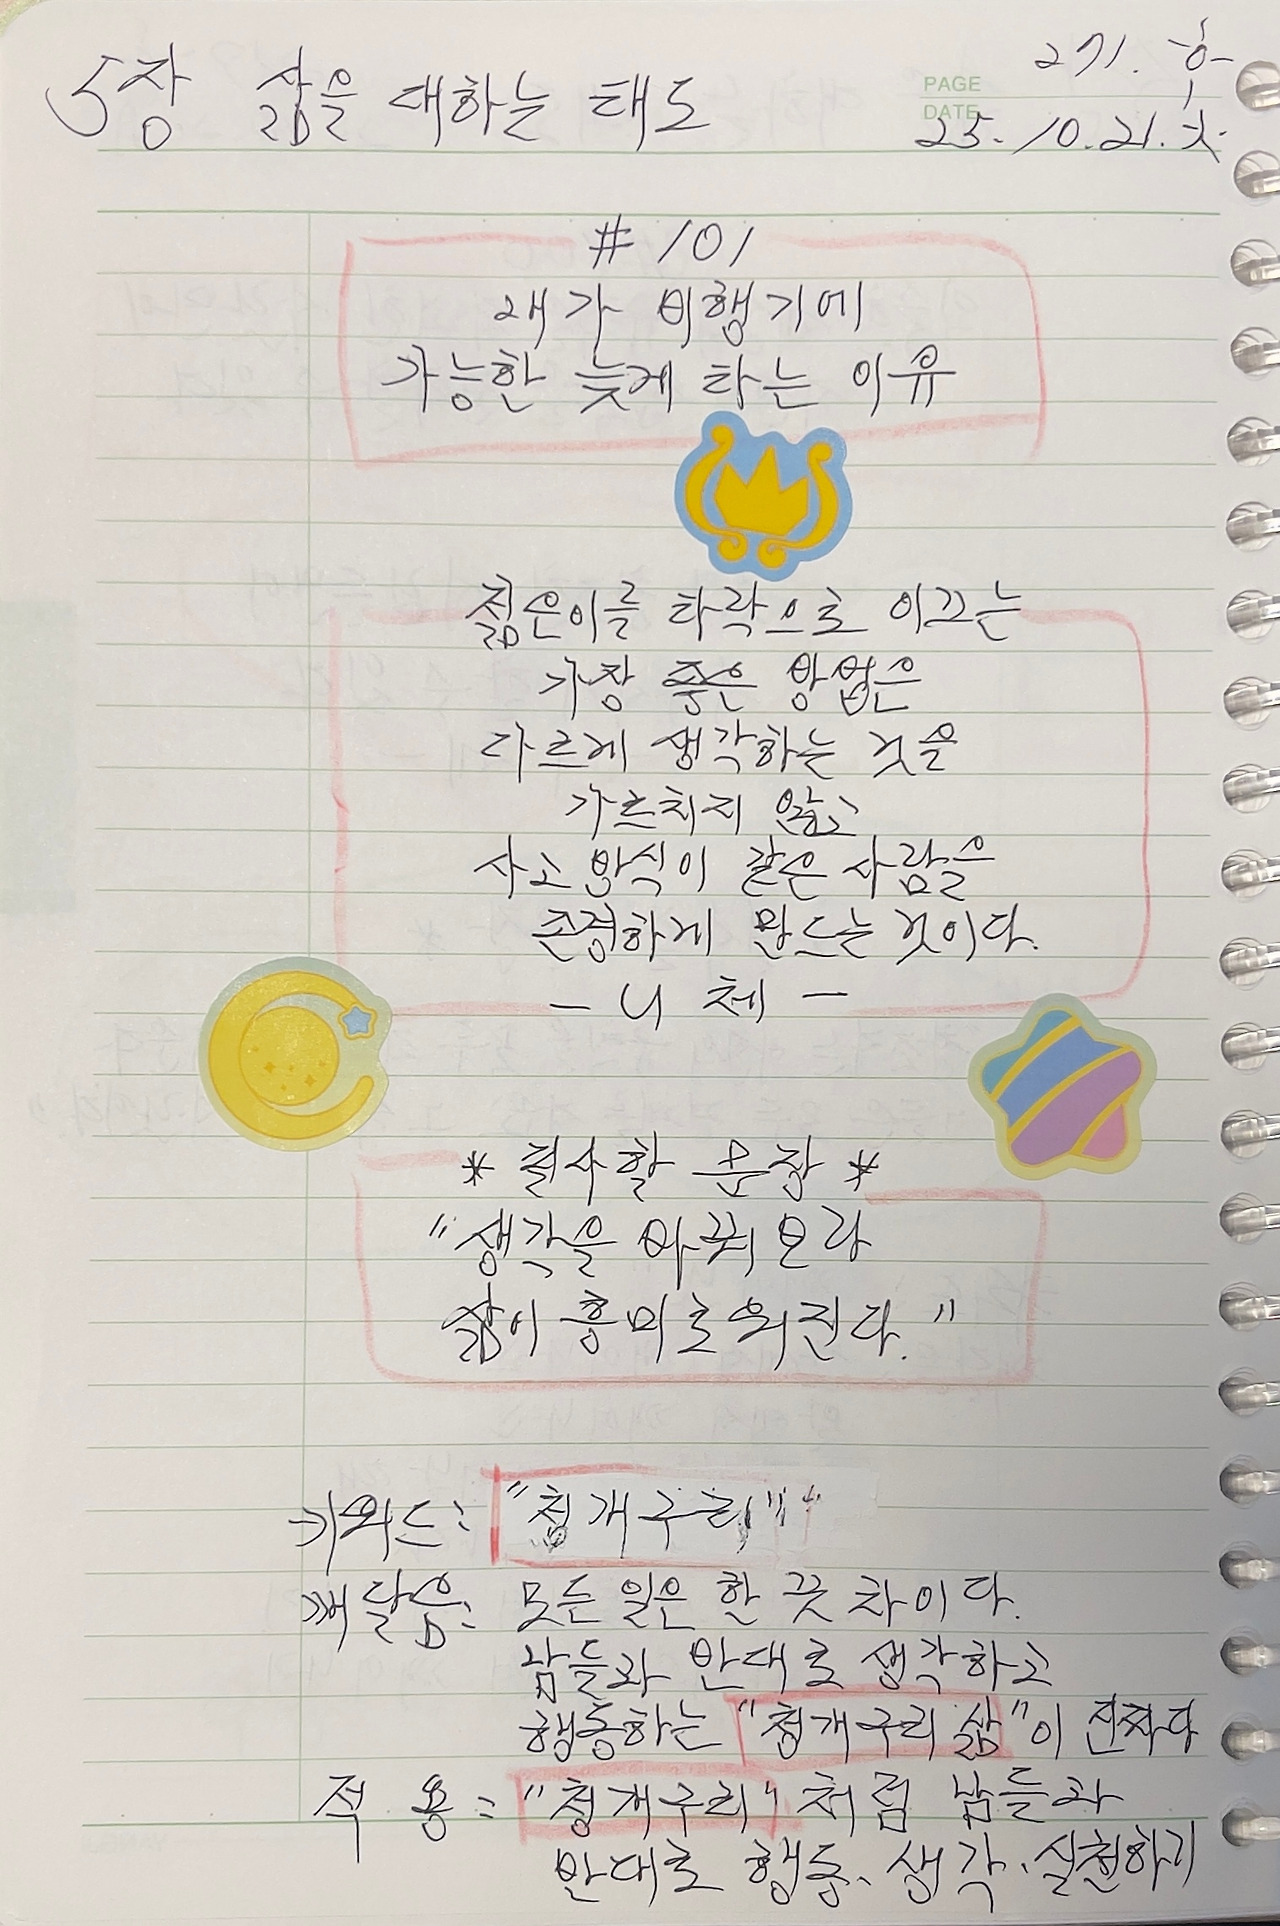 5장 삶을 대하는 태도
271. 화
PAGE
DATE 25. 10. 21. 화.
#101
내가 비행기에
가능한 늦게 타는 이유
젊은이를 타락으로 이끄는
가장 좋은 방법은
다르게 생각하는 것을
가르치지 않고
사고 방식이 같은 사람을
존경하게 만드는 것이다.
- 니체 -
* 필사할 문장 *
"생각을 바꿔보라
삶이 흥미로워진다."
키워드: "청개구리"
깨달음: 모든 일은 한 끗 차이다.
남들과 반대로 생각하고
행동하는 "청개구리 삶"이 진짜다
적 용: "청개구리"처럼 남들과
반대로 행동, 생각, 실천하기